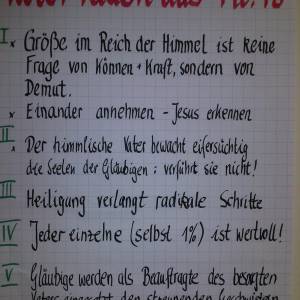 I × Größe im Reich der Himmel ist keine
Frage von Können + Kraft, sondern von
Demut.
× Einander annehmen - Jesus erkennen
II × Der himmlische Vater bewacht eifersüchtig
die Seelen der Gläubigen : verführt sie nicht!
III Heiligung verlangt radikale Schritte
IV Jeder einzelne (selbst 1%) ist wertvoll!
V Gläubige werden als Beauftragte des besorgten
Vaters eingesetzt den streunenden